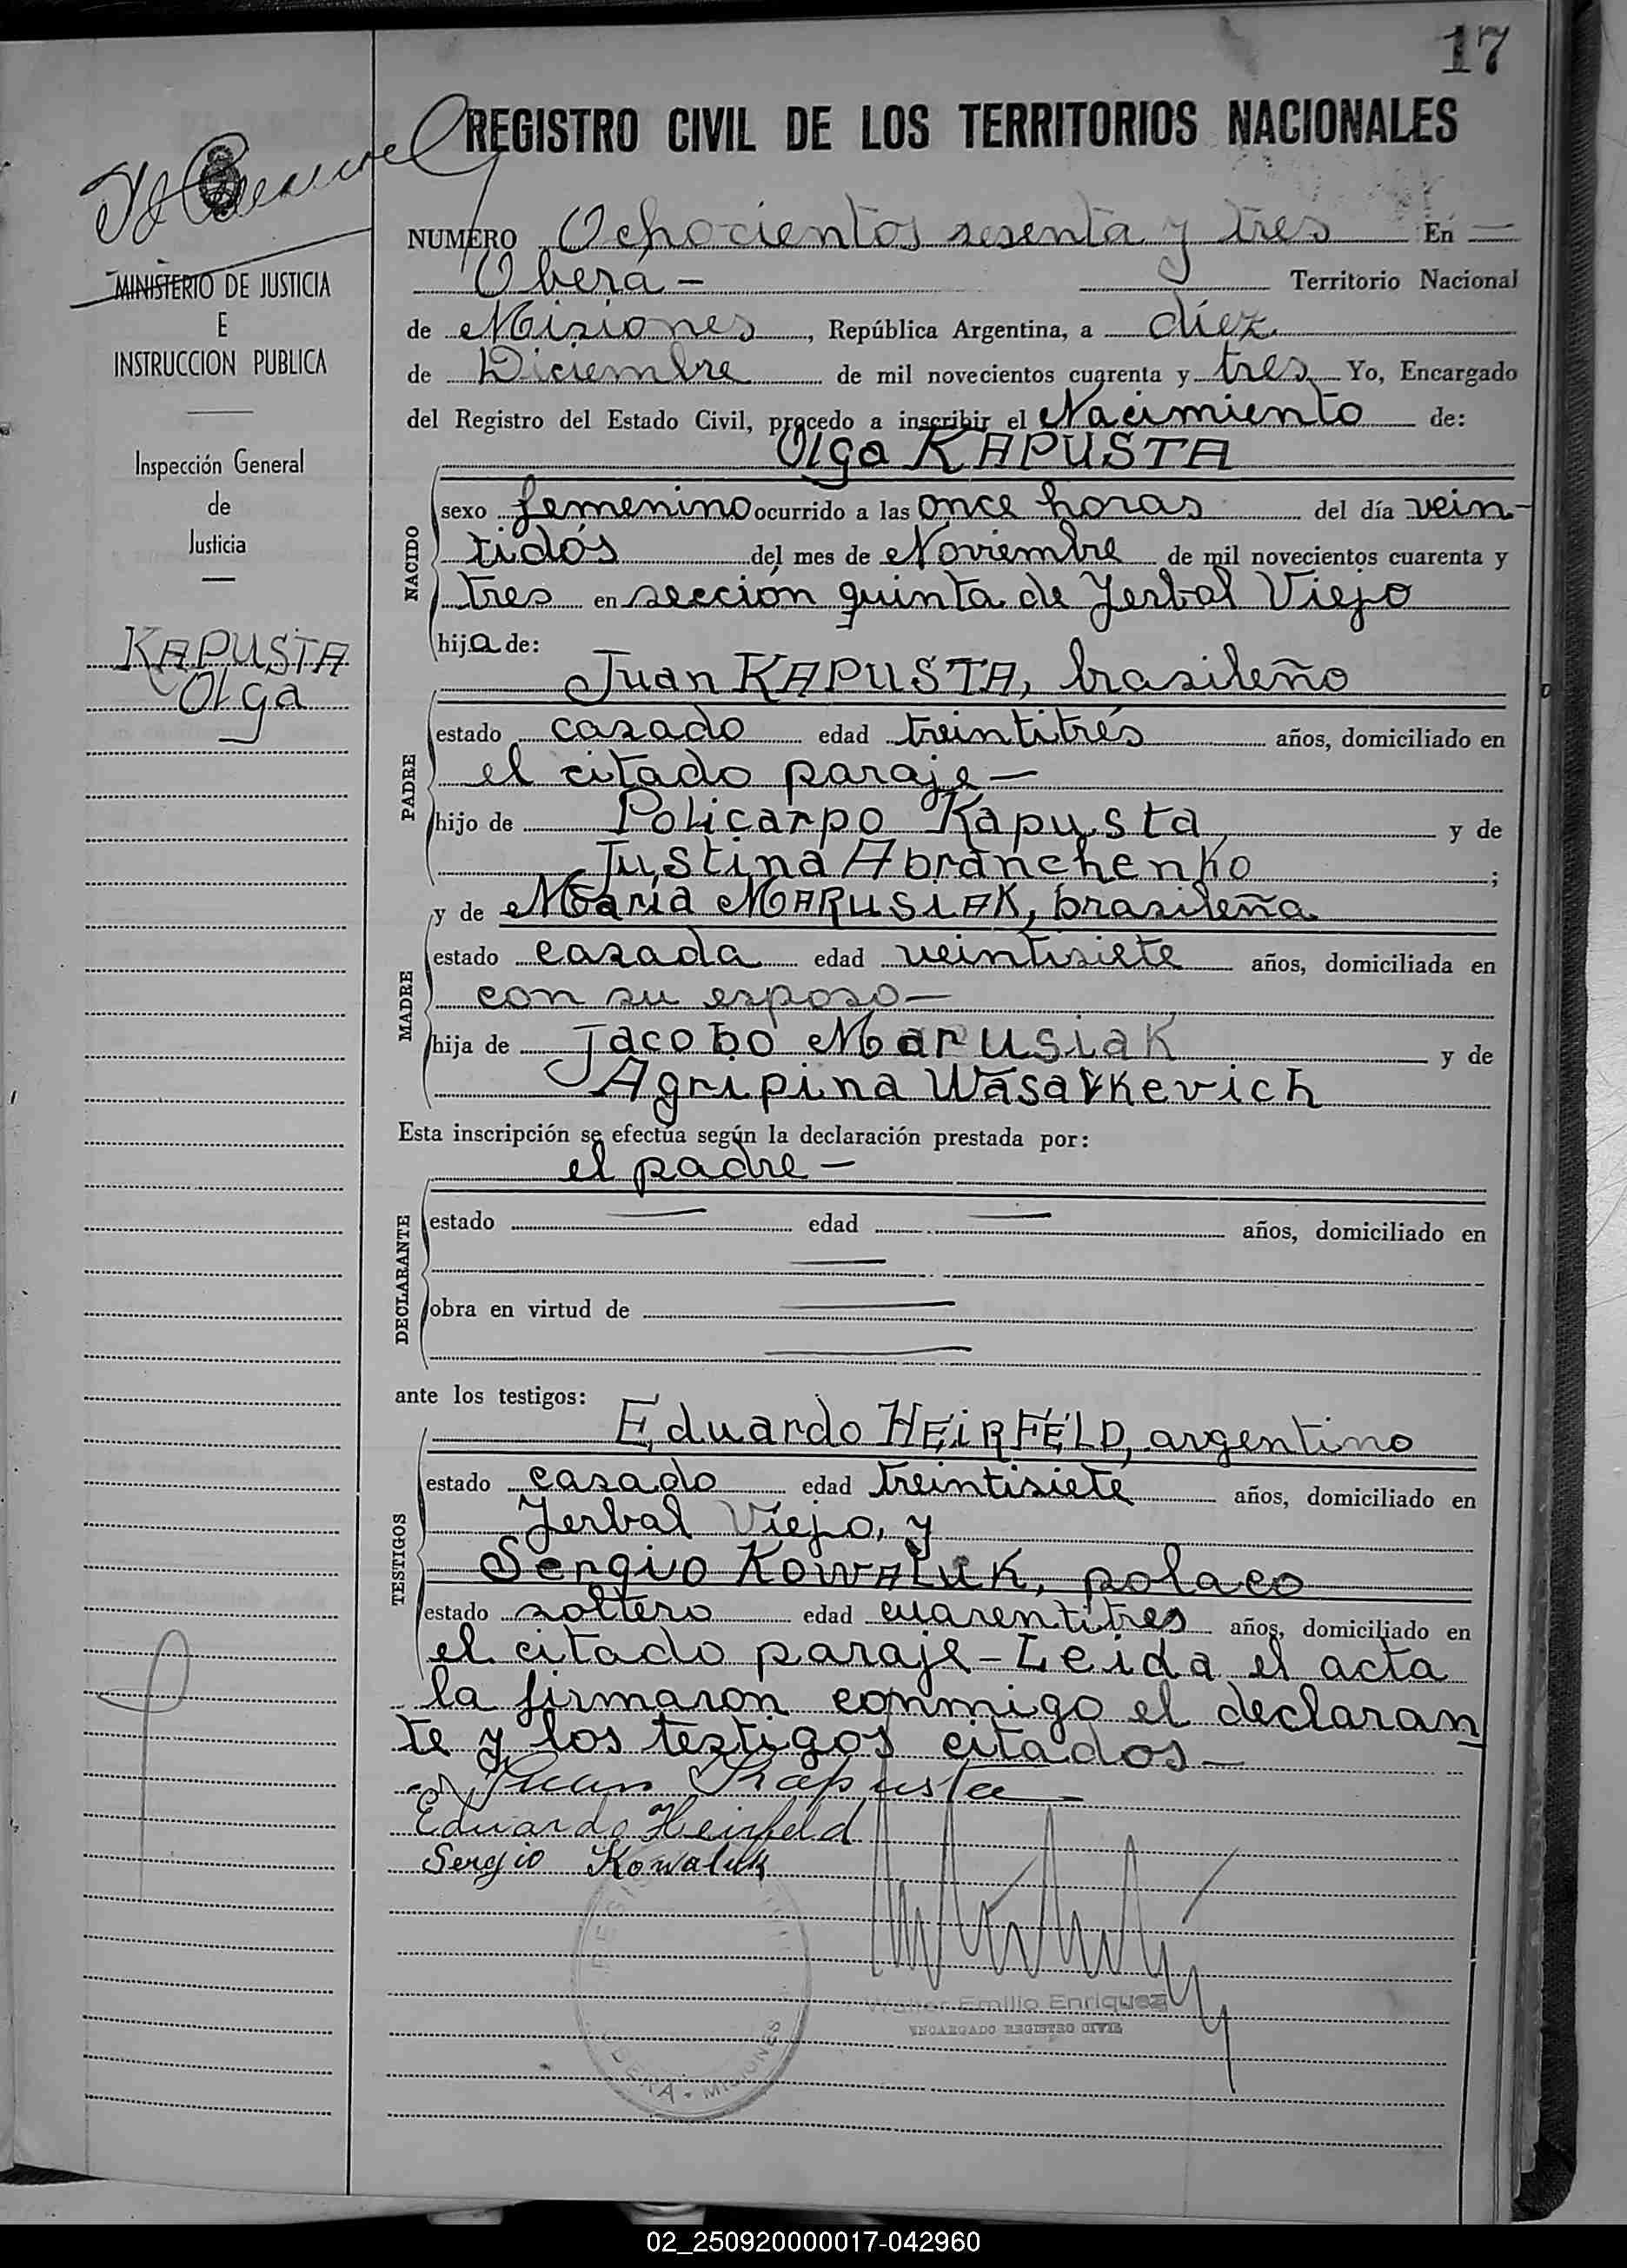 17
REGISTRO CIVIL DE LOS TERRITORIOS NACIONALES
MINISTERIO DE JUSTICIA
E
INSTRUCCION PUBLICA
Inspección General
de
Justicia
KAPUSTA
Olga
NUMERO Ochocientos sesenta y tres En —
Oberá — Territorio Nacional
de Misiones, República Argentina, a diez
de Diciembre de mil novecientos cuarenta y tres Yo, Encargado
del Registro del Estado Civil, procedo a inscribir el Nacimiento de:
Olga KAPUSTA
NACIDO
sexo femenino ocurrido a las once horas del día vein-
tidós del mes de Noviembre de mil novecientos cuarenta y
tres en sección quinta de Yerbal Viejo
hija de:
Juan KAPUSTA, brasileño
PADRE
estado casado edad treintitrés años, domiciliado en
el citado paraje —
hijo de Policarpo Kapusta y de
Justina Abranchenko ;
y de María MARUSIAK, brasileña
MADRE
estado casada edad veintisiete años, domiciliada en
con su esposo —
hija de Jacobo Marusiak y de
Agripina
Esta inscripción se efectúa según la declaración prestada por:
el padre —
DECLARANTE
estado — edad — años, domiciliado en
—
obra en virtud de —
—
ante los testigos:
Eduardo HEIRFELD, argentino
TESTIGOS
estado casado edad treintisiete años, domiciliado en
Yerbal Viejo, y
Sergio KOWALUK, polaco
estado soltero edad cuarentitres años, domiciliado en
el citado paraje — Leida el acta
la firmaron conmigo el declaran
te y los teztigos citados —
Juan Kapusta
Eduardo Heirfeld
Sergio Kowaluk
Walter Emilio Enriquez
ENCARGADO REGISTRO CIVIL
OBERA - MISIONES
02_250920000017-042960